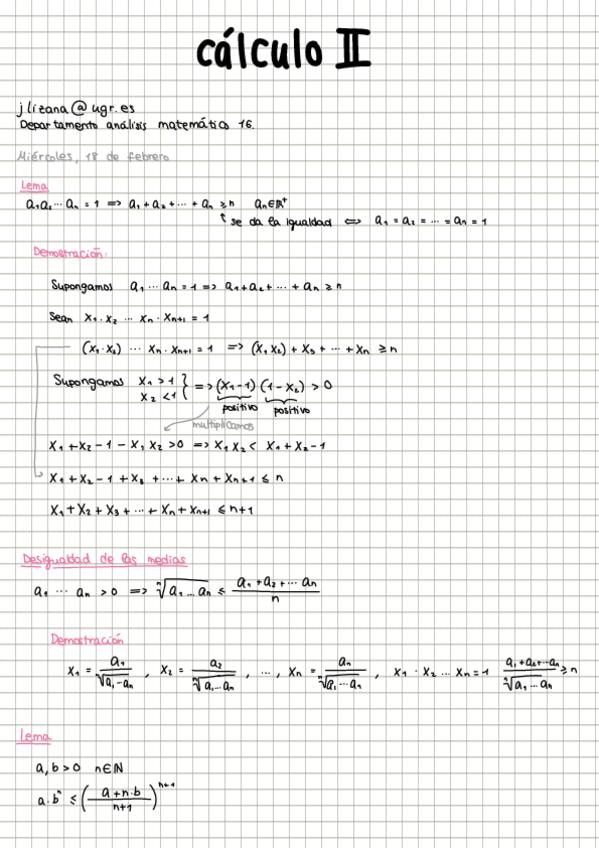 cálculo II
jlizana@ugr.es
Departamento análisis matemático 16.
Miércoles, 18 de febrero
Lema
a₁a₂ ... aₙ = 1 => a₁ + a₂ + ... + aₙ ≥ n aₙ∈ℝ⁺
↑ se da la igualdad <=> a₁ = a₂ = ... = aₙ = 1
Demostración:
Supongamos a₁ ... aₙ = 1 => a₁ + a₂ + ... + aₙ ≥ n
Sean x₁ · x₂ ... xₙ · xₙ₊₁ = 1
(x₁·x₂) ... xₙ · xₙ₊₁ = 1 => (x₁x₂) + x₃ + ... + xₙ ≥ n
Supongamos x₁ > 1
x₂ < 1 } => (x₁-1) (1-x₂) > 0
positivo positivo
multiplicamos
x₁ + x₂ - 1 - x₁x₂ > 0 => x₁x₂ < x₁ + x₂ - 1
x₁ + x₂ - 1 + x₃ + ... + xₙ + xₙ₊₁ ≤ n
x₁ + x₂ + x₃ + ... + xₙ + xₙ₊₁ ≤ n+1
Desigualdad de las medias
a₁ ... aₙ > 0 => ⁿ√(a₁...aₙ) ≤ (a₁ + a₂ + ... aₙ)/n
Demostración
x₁ = a₁/ⁿ√(a₁...aₙ), x₂ = a₂/ⁿ√(a₁...aₙ), ..., xₙ = aₙ/ⁿ√(a₁...aₙ), x₁ · x₂ ... xₙ = 1 (a₁+a₂+...aₙ)/ⁿ√(a₁...aₙ) ≥ n
Lema
a, b > 0 n∈ℕ
a·bⁿ ≤ ((a + n·b)/(n+1))ⁿ⁺¹